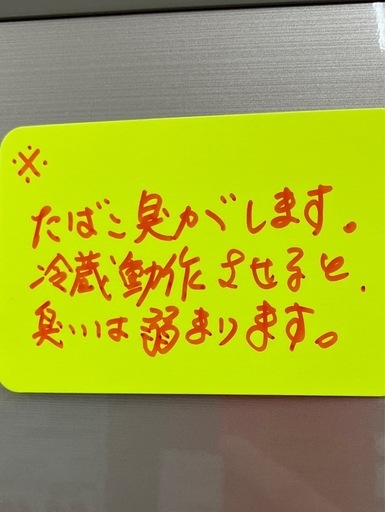 ※
たばこ臭がします。
冷蔵動作させると、
臭いは弱まります。